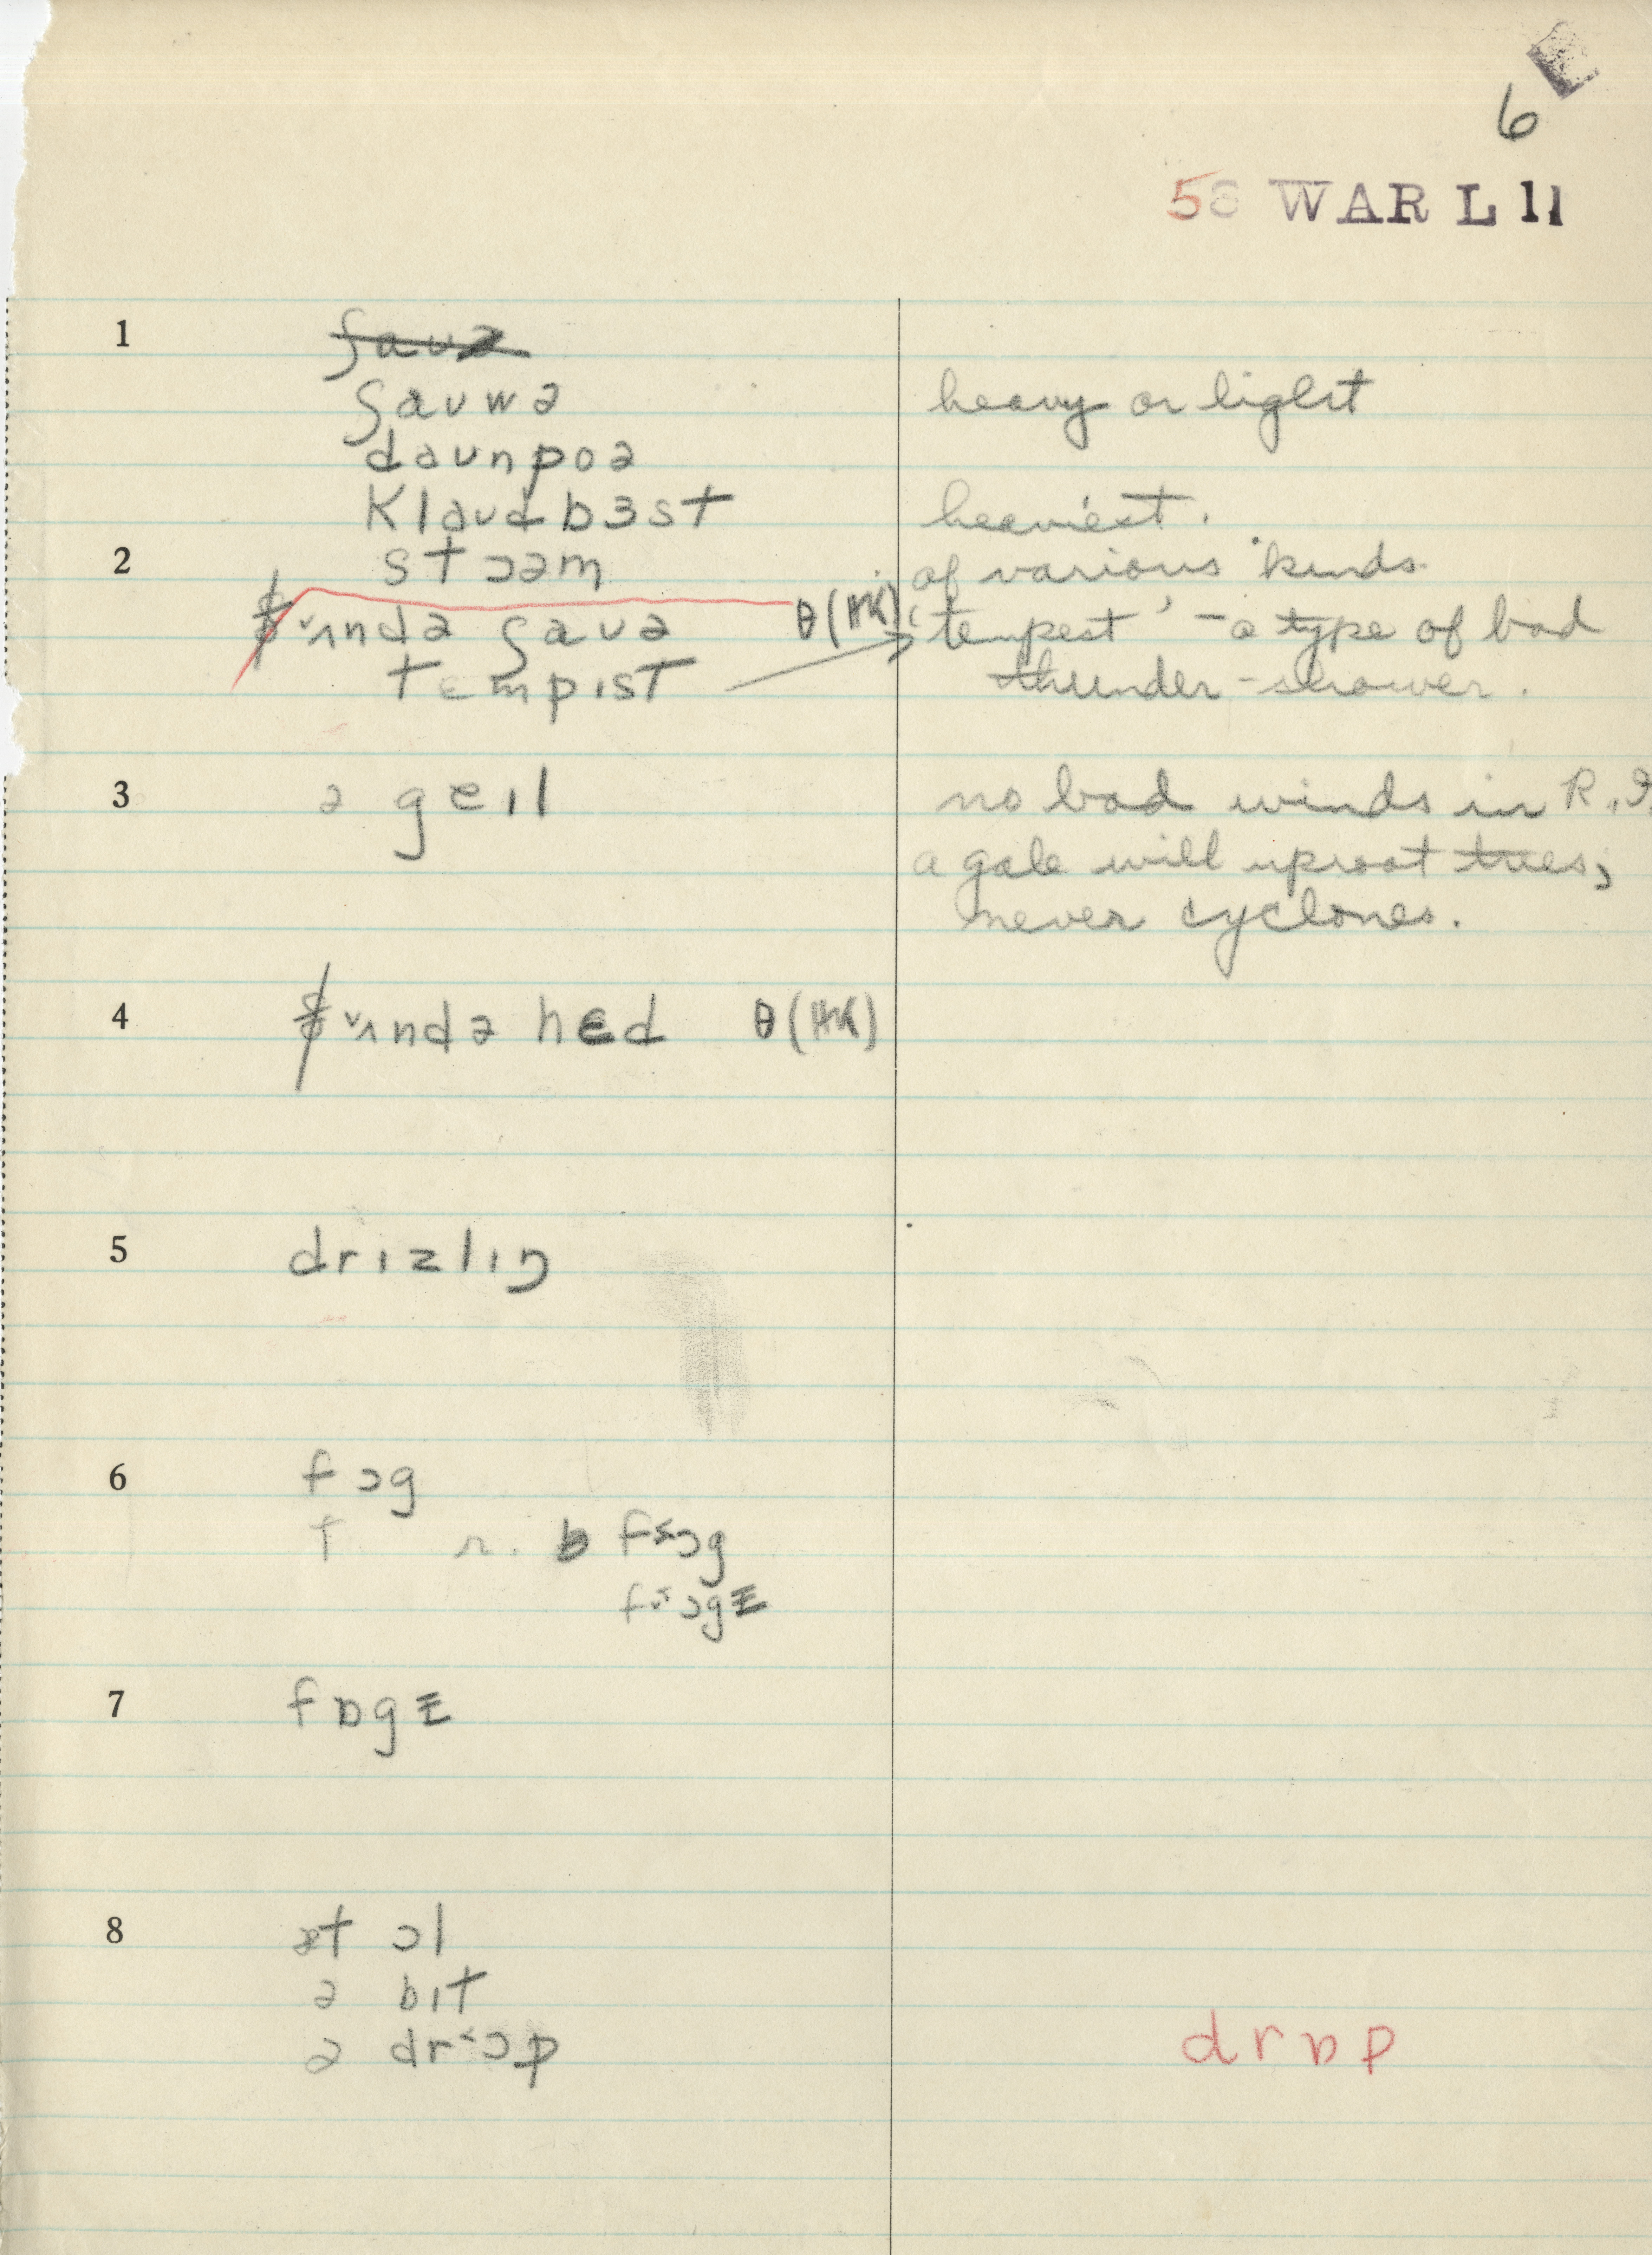 6
58 WAR L 11
1 ʃaʊə
ʃaʊwə heavy or light
daʊnpoə
klaʊdbɜst heaviest.
2 stɔəm of various kinds.
ʌndə ʃaʊə θ(HK) 'tempest' - a type of bad
tempɪst thunder-shower.
3 ə geɪl no bad winds in R.I.
a gale will uproot trees,
never cyclones.
4 ʌndə hɛd θ(HK)
5 drɪzlɪŋ
6 fɔg
f r. b f˂ɔg
f˂ɔgɪ
7 fɒgɪ
8 ət ɔl
ə bɪt
ə dr˂ɔp drɒp